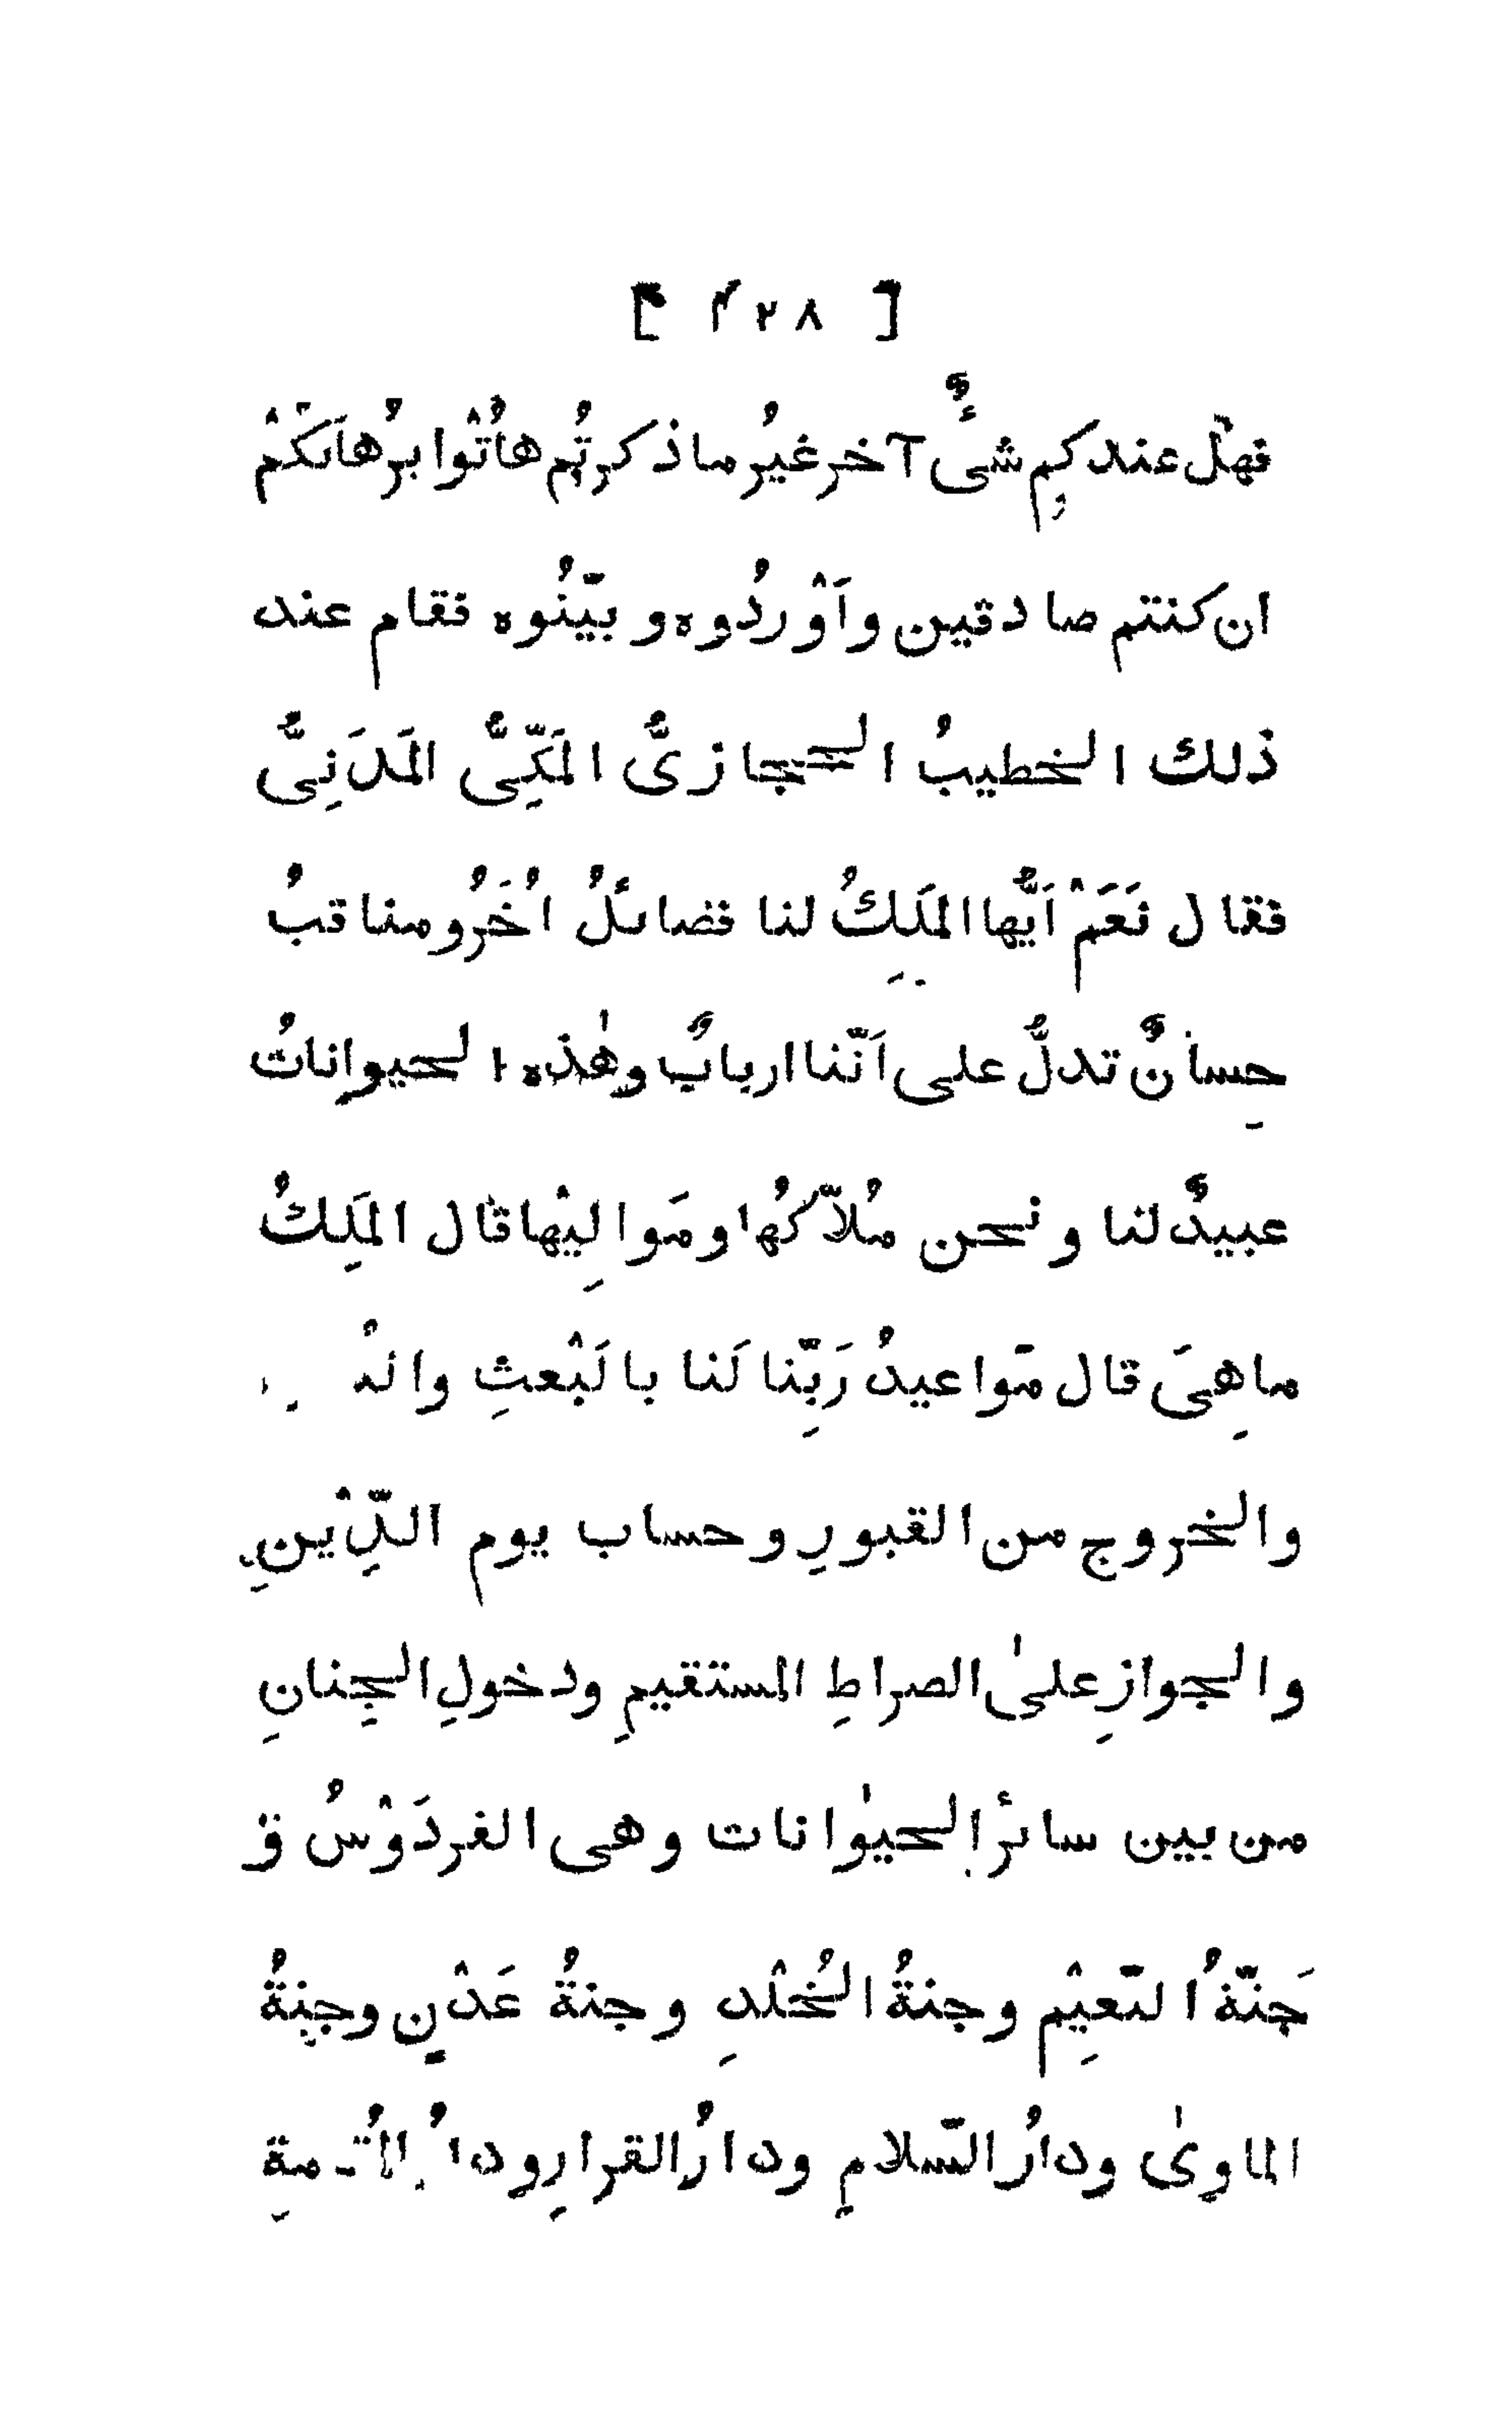 [ ۴۲۸ ]
فهلْ عندكم شىءٌ آخر غيرُ ما ذكرتُم هاتُوْا برُهاَنَكمْ
ان كنتم صادقين واَوْردُوه و بيّنُوه فقام عند
ذلك الخطيبُ الحجازىُّ المَكِّىُّ المَدَنِىُّ
فقال نَعَمْ اَيُّها المَلِكُ لنا فضائلُ اُخَرُ ومناقبُ
حِسانٌ تدلُّ على اَنّنا اربابٌ وهٰذه الحيواناتُ
عبيدٌ لنا ونحن مُلاّكُها ومَوالِيْها قال المَلِكُ
ماهِىَ قال مَواعيدُ رَبِّنا لَنا بالَبْعثِ
والخروج من القبورِ وحساب يوم الدِّيْنِ
والجوازِ علىٰ الصراطِ المستقيمِ ودخولِ الجِنانِ
من بين سائر الحيوٰانات وهى الفردَوْسُ وَ
جَنّةُ النّعيِمْ وجنةُ الخُلْدِ وجنةُ عَدْنٍ وجنةُ
الماوىٰ ودارُ السّلامِ ودارُ القرارِ